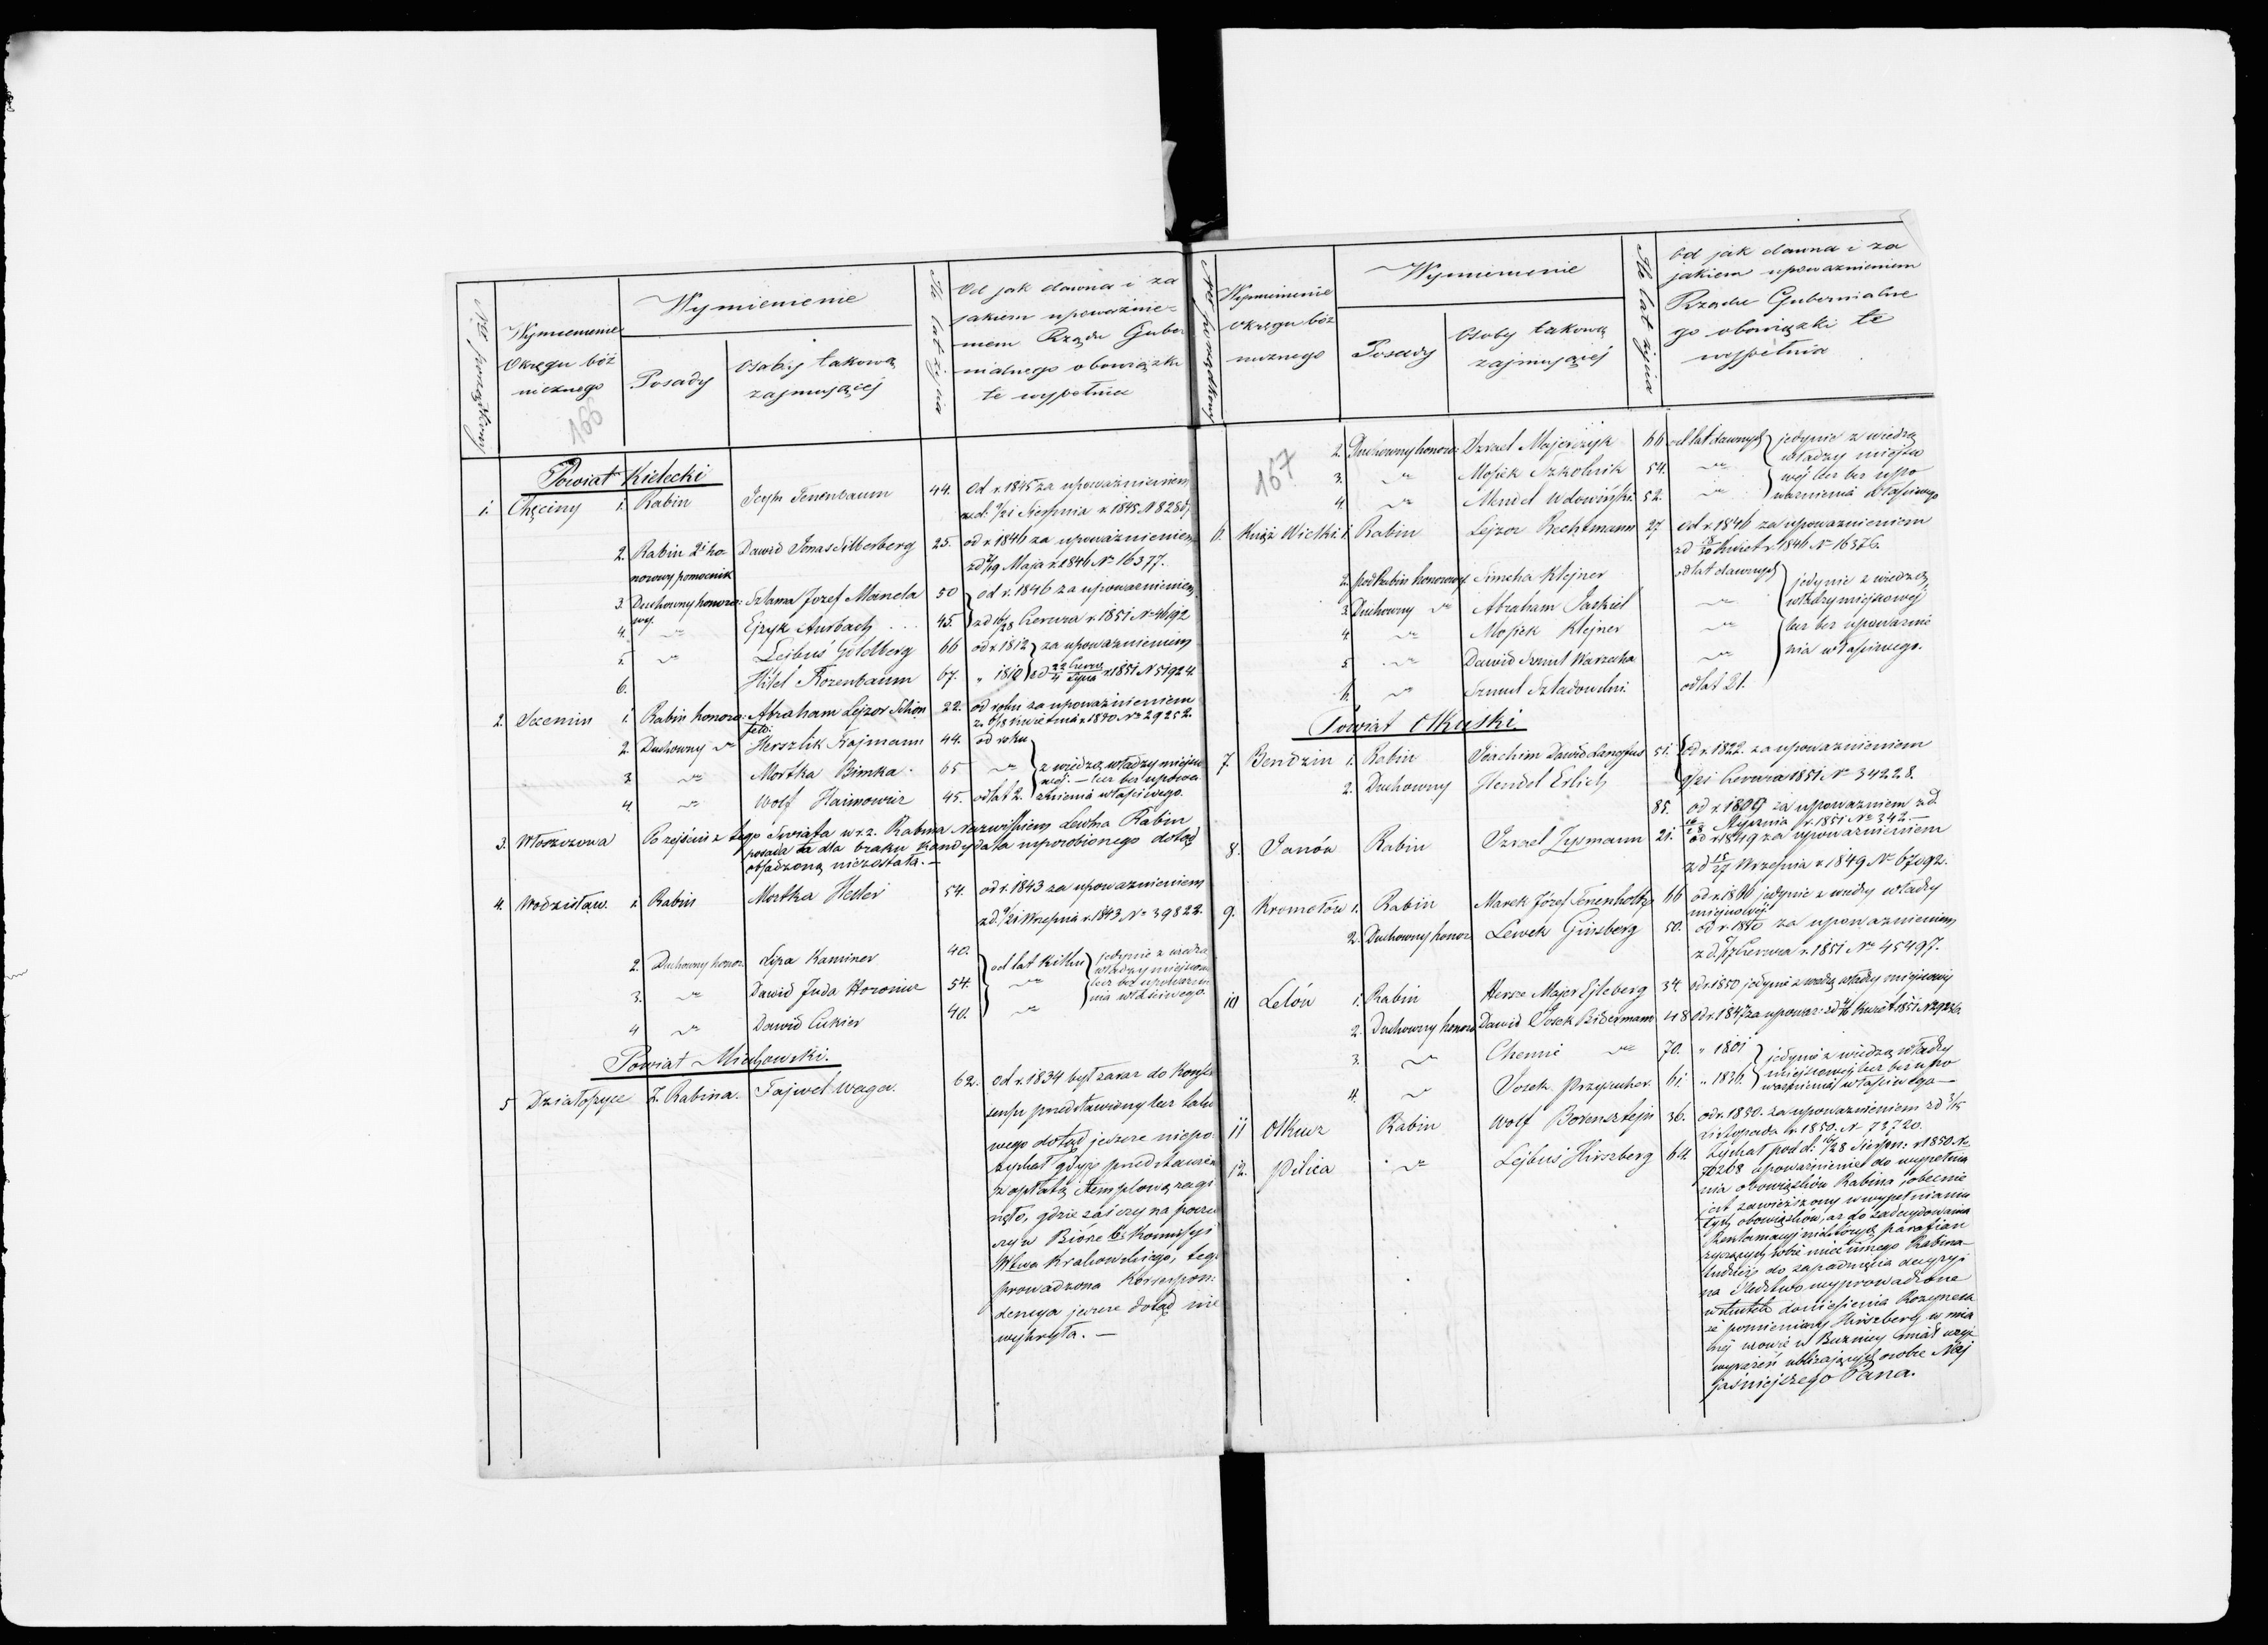 166
Nr porządkowy
Wymienienie Okręgu bóżniczego
Wymienienie
Posady
Osoby takową zajmującéj
Ile lat życia
Od jak dawna i za
jakiem upoważnie=
niem Rządu Guber
nialnego obowiązki
te wypełnia
Powiat Kielecki
1. Chęciny 1. Rabin Tenenbaum 44. Od r. 1845 za upoważnieniem
z d. 9/21 Sierpnia r. 1845 N
2. Rabin 2i ho- Dawid Jonas Silberberg 25. od r. 1846 za upoważnieniem
norowy pomocnik zd 7/19 Maja r. 1846 No 16377.
3. Duchowny honoro= Szlama Jozef Manela 50 od r. 1846 za upoważnieniem
wy.
4. " Ejzyk Aurbach 45. zd 16/28 Czerwca r. 1851 No 4692
5. " Leibuś Goldberg 66 od r. 1812 za upoważnieniem
6. Hilel Rozenbaum 67. " 1810 zd 22/4 Czerw/Lipca r. 1851 N 51924.
2. 1. Rabin honoro= Abraham Lejzor Schön 22. od roku za upoważnieniem
feld. z 6/18 Kwietnia r. 1850. No 29252.
2. Duchowny " Herszlik Frajmann 44. od roku
3. " Mortka Bimka. 65 " z wiedzą władzy miejsco
wéj. – lecz bez upowa
4. " Wolf Haimowicz 45. od lat 2. żnienia właściwego.
3. Włoszczowa Po zejściu z tego Świata w r. z. Rabina Nazwiskiem Lewka Rabin
posada ta dla braku Kandydata usposobionego dotąd
obsadzoną niezostała. –
4. Wodzisław. 1. Rabin Mortka Heller 54. od r. 1843 za upoważnieniem
z d. 9/21 Września r. 1843 No 39822.
2. Duchowny honor. Lipa Kaminer 40. od lat kilku jedynie z wiedzą
władzy miejscow
3. " Dawid Juda Horowicz 54. " lecz bez upoważn
4 " Dawid Cukier 40. " nia właściwego.
Powiat Miechowski.
5 Działoszyce Z. Rabina. Fajwel Waga. 62. od r. 1834 był zaraz do Konsen
sensu przedstawiony lecz tako
wego dotąd jeszcze niepo
zyskał gdyż przedstawien
z opłatą stemplową zagi
nęło, gdzie zaś czy na poczcie
czy w Biórze b: Komissyi
Wtwa Krakowskiego, tego
prowadzona Korrespon=
dencya jeszcze dotąd nie
wykryła. –
167
Nr porządkowy
Wymienienie
Okręgu bóż
niczego
Wymienienie
Posady
Osoby takową
zajmującéj
Ile lat życia
Od jak dawna i za
jakiem upoważnieniem
Rządu Gubernialne
go obowiązki te
wypełnia
2. Duchowny honoro= Izrael Majerczyk 66 od lat dawnych jedynie z wiedzą
władzy miejsco
3. " Mosiek Szkolnik 54. " wéj lecz bez upo
4. " Mendel Wdowiński. 52. " ważnienia właściwego
6. Książ Wielki. 1. Rabin Lejzor Rechtmann 27 od r. 1846 za upoważnieniem
zd 18/30 Kwiet r. 1846 No 16376.
2. podRabin honorowy Simcha Klejner od lat dawnych jedynie z wiedzą
3. Duchowny " Abraham Jaskiel " władzy miejscowéj
4. " Mosiek Klejner " lecz bez upoważnie
5 " Dawid Szmul Warzecha " nia właściwego.
6. " Szmul Szladowski. od lat 21.
Powiat Olkuski.
7 Bendzin 1. Rabin Joachim Dawid Langfus 51. Od r. 1822. za upoważnieniem
9/21 Czerwca 1851 No 34228.
2. Duchowny Hendel Erlich 85. od r. 1809 za upoważniem zd
16/28 Stycznia r. 1851 No 342. –
8. Janów Rabin Izrael Zysmann 21. od r. 1849 za upoważnieniem
z d 15/27 Września r. 1849 No 67092.
9. Kromołów 1. Rabin Marek Józef Tenenholtz 66 od r. 1806 jedynie z wiedzy władzy
miejscowéj.
2. Duchowny honor Lewek Ginsberg 50. od r. 1840 za upoważnieniem
z d. 5/17 Czerwca r. 1851 No 45497.
10 Lelów 1. Rabin Hersze Majer Ejleberg 34. od r. 1850 jedynie z wiedzą władzy miejscowéj
2. Duchowny honoro Dawid Josek Bidermann 48 od r. 1847 za upoważ:
3. " Chemie " 70. " 1801 jedynie z wiedzą władzy
miejscowéj lecz bez upo
4. " Josek Przysucher. 61 " 1836. ważnienia właściwego –
11 Olkusz Rabin Wolf Borensztejn 36. od r. 1850. za upoważnieniem zd 3/15
Listopada r. 1850. N 73720.
12. Pilica " Lejbuś Hirszberg 64. Zyskał pod d: 16/28 Sierpn: r 1850 No
70268 upoważnienie do wypełnia
nia obowiązków Rabina, obecnie
jest zawieszony w wypełnianiu
tych obowiązków, aż do zadecydowania
Reklamacyi niektórych parafian
życzących sobie mieć innego Rabina
tudzież do zapadnięcia decyzyi
na Śledztwo wyprowadzone
w skutek doniesienia Rozynera
że pomieniony Hirszberg w mia
néj mowie w Buznicy miał użyć
wyrażeń ubliżających osobie Naj
jaśniejszego Pana.